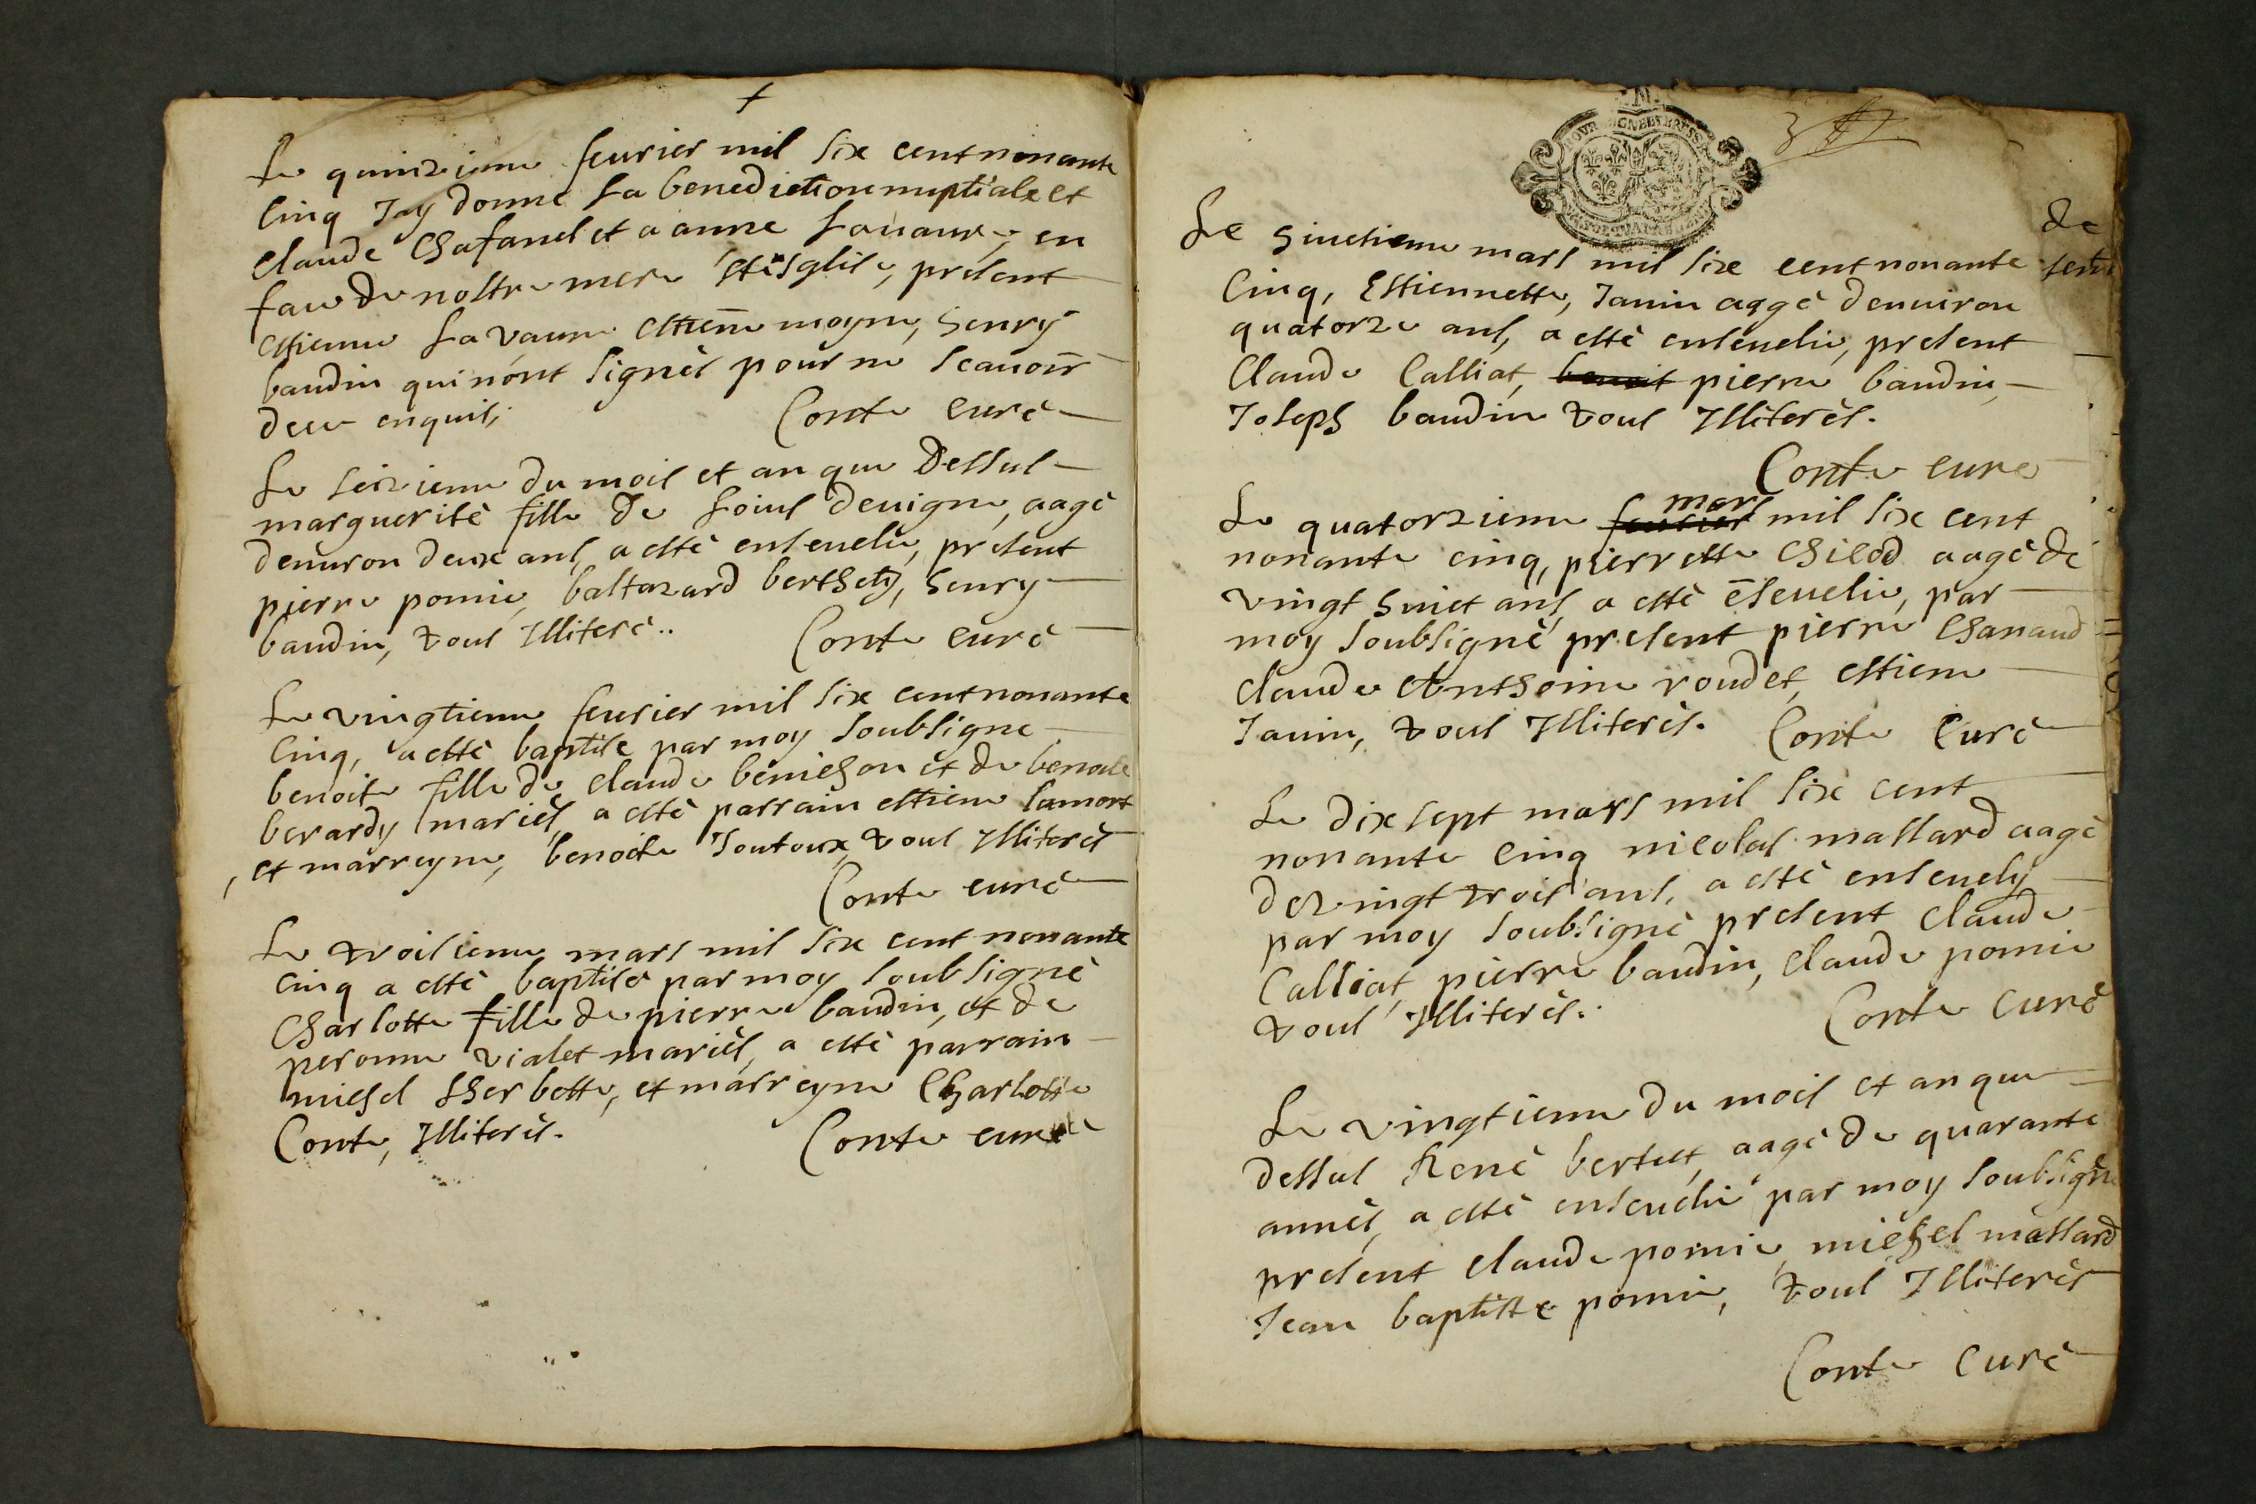 Le quinzieme feurier mil six cent nonante
cinq Jay donné La benediction nuptiale et
Claude Chafanel et a anne Lauaure, en
face de nostre mere Ste Esglise, present
estienne La vaure estiene moyne, henry
baudin qui nont signés pour ne scauoir
de ce enquis, Conte curé
Le seizieme du mois et an que dessus
marguerite fille de Louis deuigne, aagé
denuiron deux ans, a esté enseuelie, present
pierre pomie, baltazard berthety, henry
baudin, tous Illiteré.. Conte curé
Le vingtieme feurier mil six cent nonante
cinq, a esté baptise par moy soubsigne
benoite fille de Claude benichon et de benoite
berardy mariés, a esté parrain estiene Lamort
et marreyne, benoite Joutoux, tous Illiterés
Conte curé
Le troisieme mars mil six cent nonante
cinq a esté baptisé par moy soubsigné
Charlotte fille de pierre baudin, et de
peronne vialet mariés, a esté parrain
michel therbette, et marreyne Charlotte
Conte, Illiterés. Conte curé
Le huictieme mars mil six cent nonante
cinq, Estiennette, Janin aagé denuiron
quatorze ans, a esté enseuelie, present
Claude Calliat, benoit pierre baudin,
Joseph baudin tous Illiterés.
Conte curé
Le quatorzieme feurier mars mil six cent
nonante cinq, pierrette Chicod aagé de
vingt huict ans, a esté ēseuelie, par
moy soubsigné, present pierre Chanaud
Claude Anthoine roudet, estiene
Janin, tous Illiterés. Conte Curé
Le dix sept mars mil six cent
nonante cinq nicolas massard aagé
de vingt trois ans, a esté enseuely
par moy soubsigné present Claude
Calliat, pierre baudin, Claude pomie
tous Illiterés. Conte Curé
Le vingtieme du mois et an que
dessus René bertet, aagé de quarante
annés, a esté enseuelie par moy soubsigné
present Claude pomie, michel massard
Jean baptiste pomie, tous Illiterés
Conte Curé